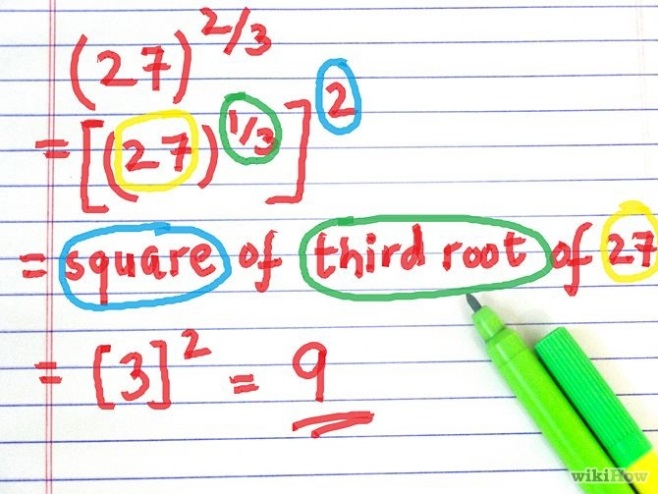 (27)^2/3
= [(27)^1/3]^2
= square of third root of 27
= [3]^2 = 9
wikiHow